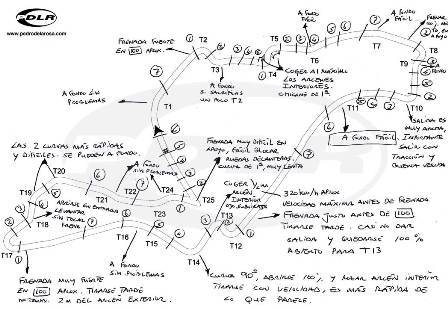 PDLR
www.pedrodelarosa.com
FRENADA FUERTE
EN 100 APROX.
T2
T3
T4
T5
T6
T7
T8
T9
T10
T11
A FONDO
FÁCIL
A FONDO
FÁCIL
A FONDO SIN
PROBLEMAS
T1
A FONDO
SI SALIMOS
UN POCO T2
COGER AL MÁXIMO
LOS ARCENES
INTERIORES.
CHICANE DE 1ª
SALIDA ES
MUY ANCHA,
IMPORTANTE
SALIR CON
TRACCIÓN Y
BUENA VELOCIDAD
A FONDO FÁCIL
LAS 2 CURVAS MÁS RÁPIDAS
Y DIFÍCILES. SE PUEDEN A FONDO.
A FONDO
SIN PROBLEMAS
FRENADA MUY DIFÍCIL EN
APOYO, FÁCIL BLOCAR
RUEDAS DELANTERAS.
CURVA DE 1ª, MUY LENTA
T20
T19
T21
T22
T23
T24
T25
T18
T17
T16
T15
T14
T13
T12
ARCÉN EN ENTRADA
LEVANTAR
SIN TOCAR
FRENO
A FONDO
COGER
INTERIOR
320 km/h APROX
VELOCIDAD MÁXIMA ANTES DE FRENADA
FRENADA JUSTO ANTES DE 100
TIRARSE TARDE
SALIDA Y QUEDARSE 100%
ABIERTO PARA T13
A FONDO
SIN PROBLEMAS
FRENADA MUY FUERTE
EN 100 APROX. TIRARSE TARDE
2M DEL ARCÉN EXTERIOR.
CURVA 90º, ABRIRSE 100% Y USAR ARCÉN INTERIOR
TIRARSE CON VELOCIDAD, ES MÁS RÁPIDA DE
LO QUE PARECE.